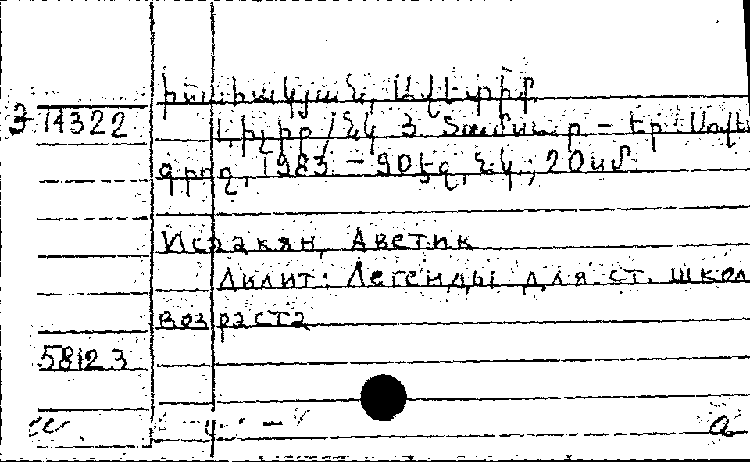 Իսահակյան, Ավետիք
3 14322
Լիլիթ / Նկ. Յ. Տամիար - Եր. Սովետ
գրող, 1983 - 90 էջ, նկ.; 20 սմ.
Исаакян, Аветик
Лилит: Легенды для ст. школ
возраста
58123
a